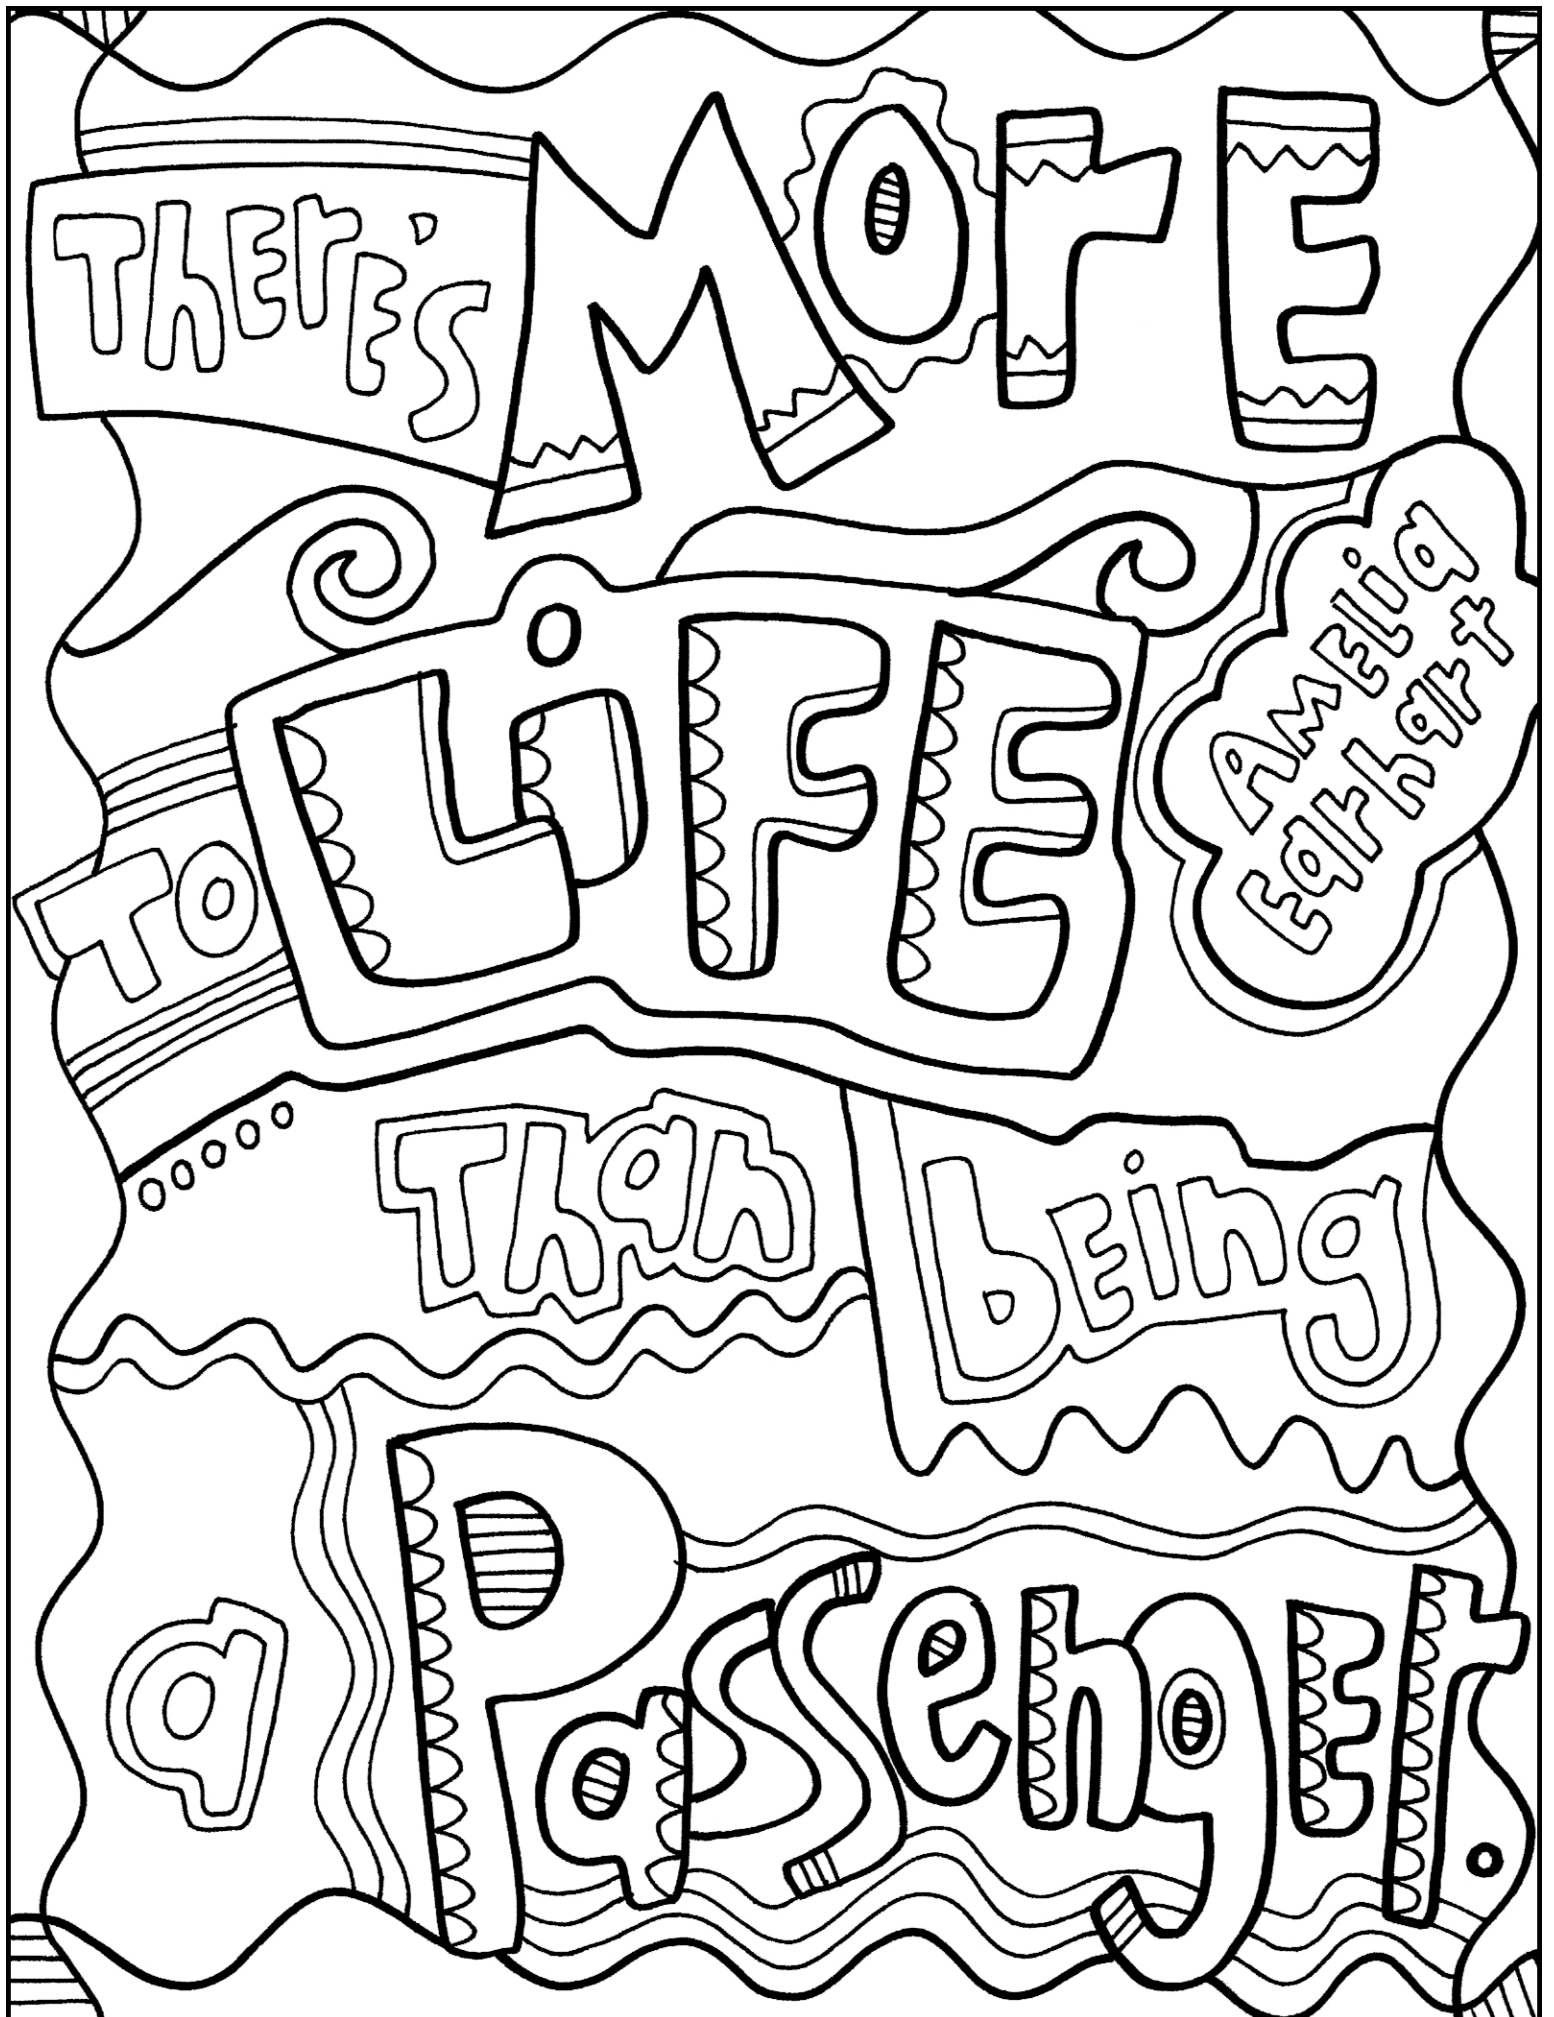 There's More
To Life
Amelia
Earhart
Than being
a Passenger.